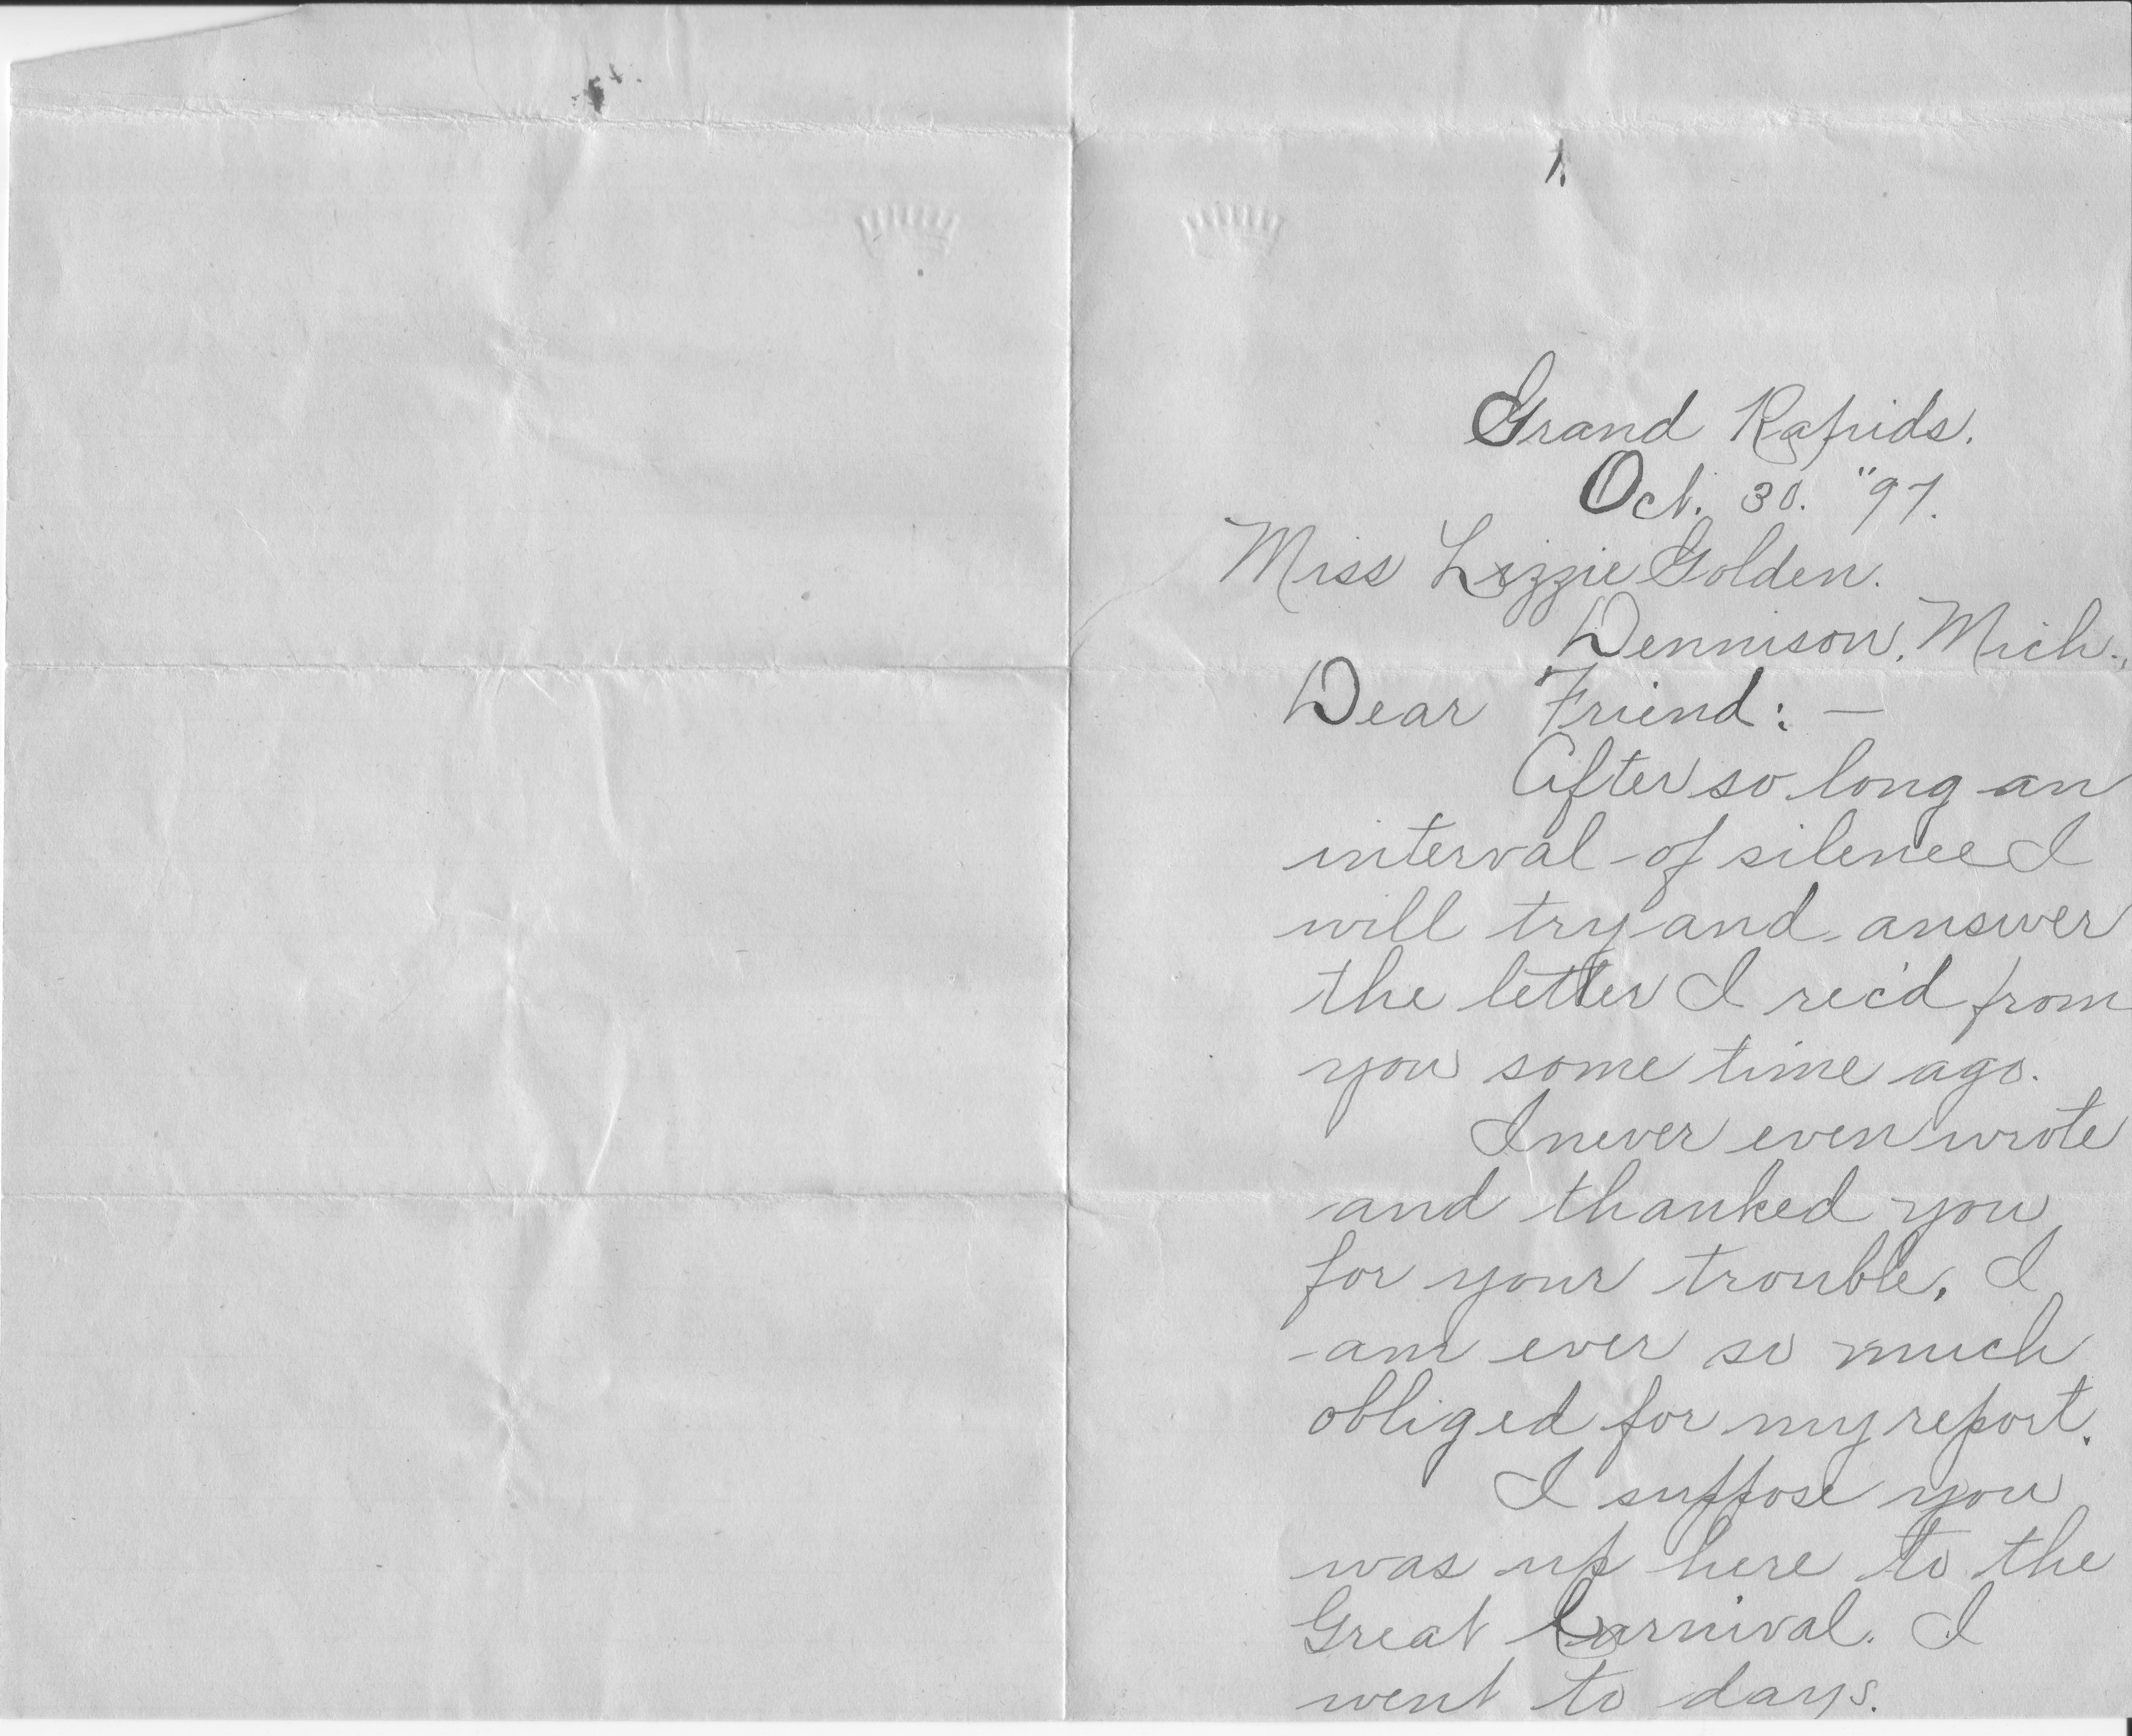 1.
Grand Rapids.
Oct. 30. "97.
Miss Lizzie Golden.
Dennison, Mich.,
Dear Friend: —
After so long an
interval of silence I
will try and answer
the letter I rec'd from
you some time ago.
I never even wrote
and thanked you
for your trouble. I
am ever so much
obliged for my report.
I suppose you
was up here to the
Great Carnival. I
went to days.